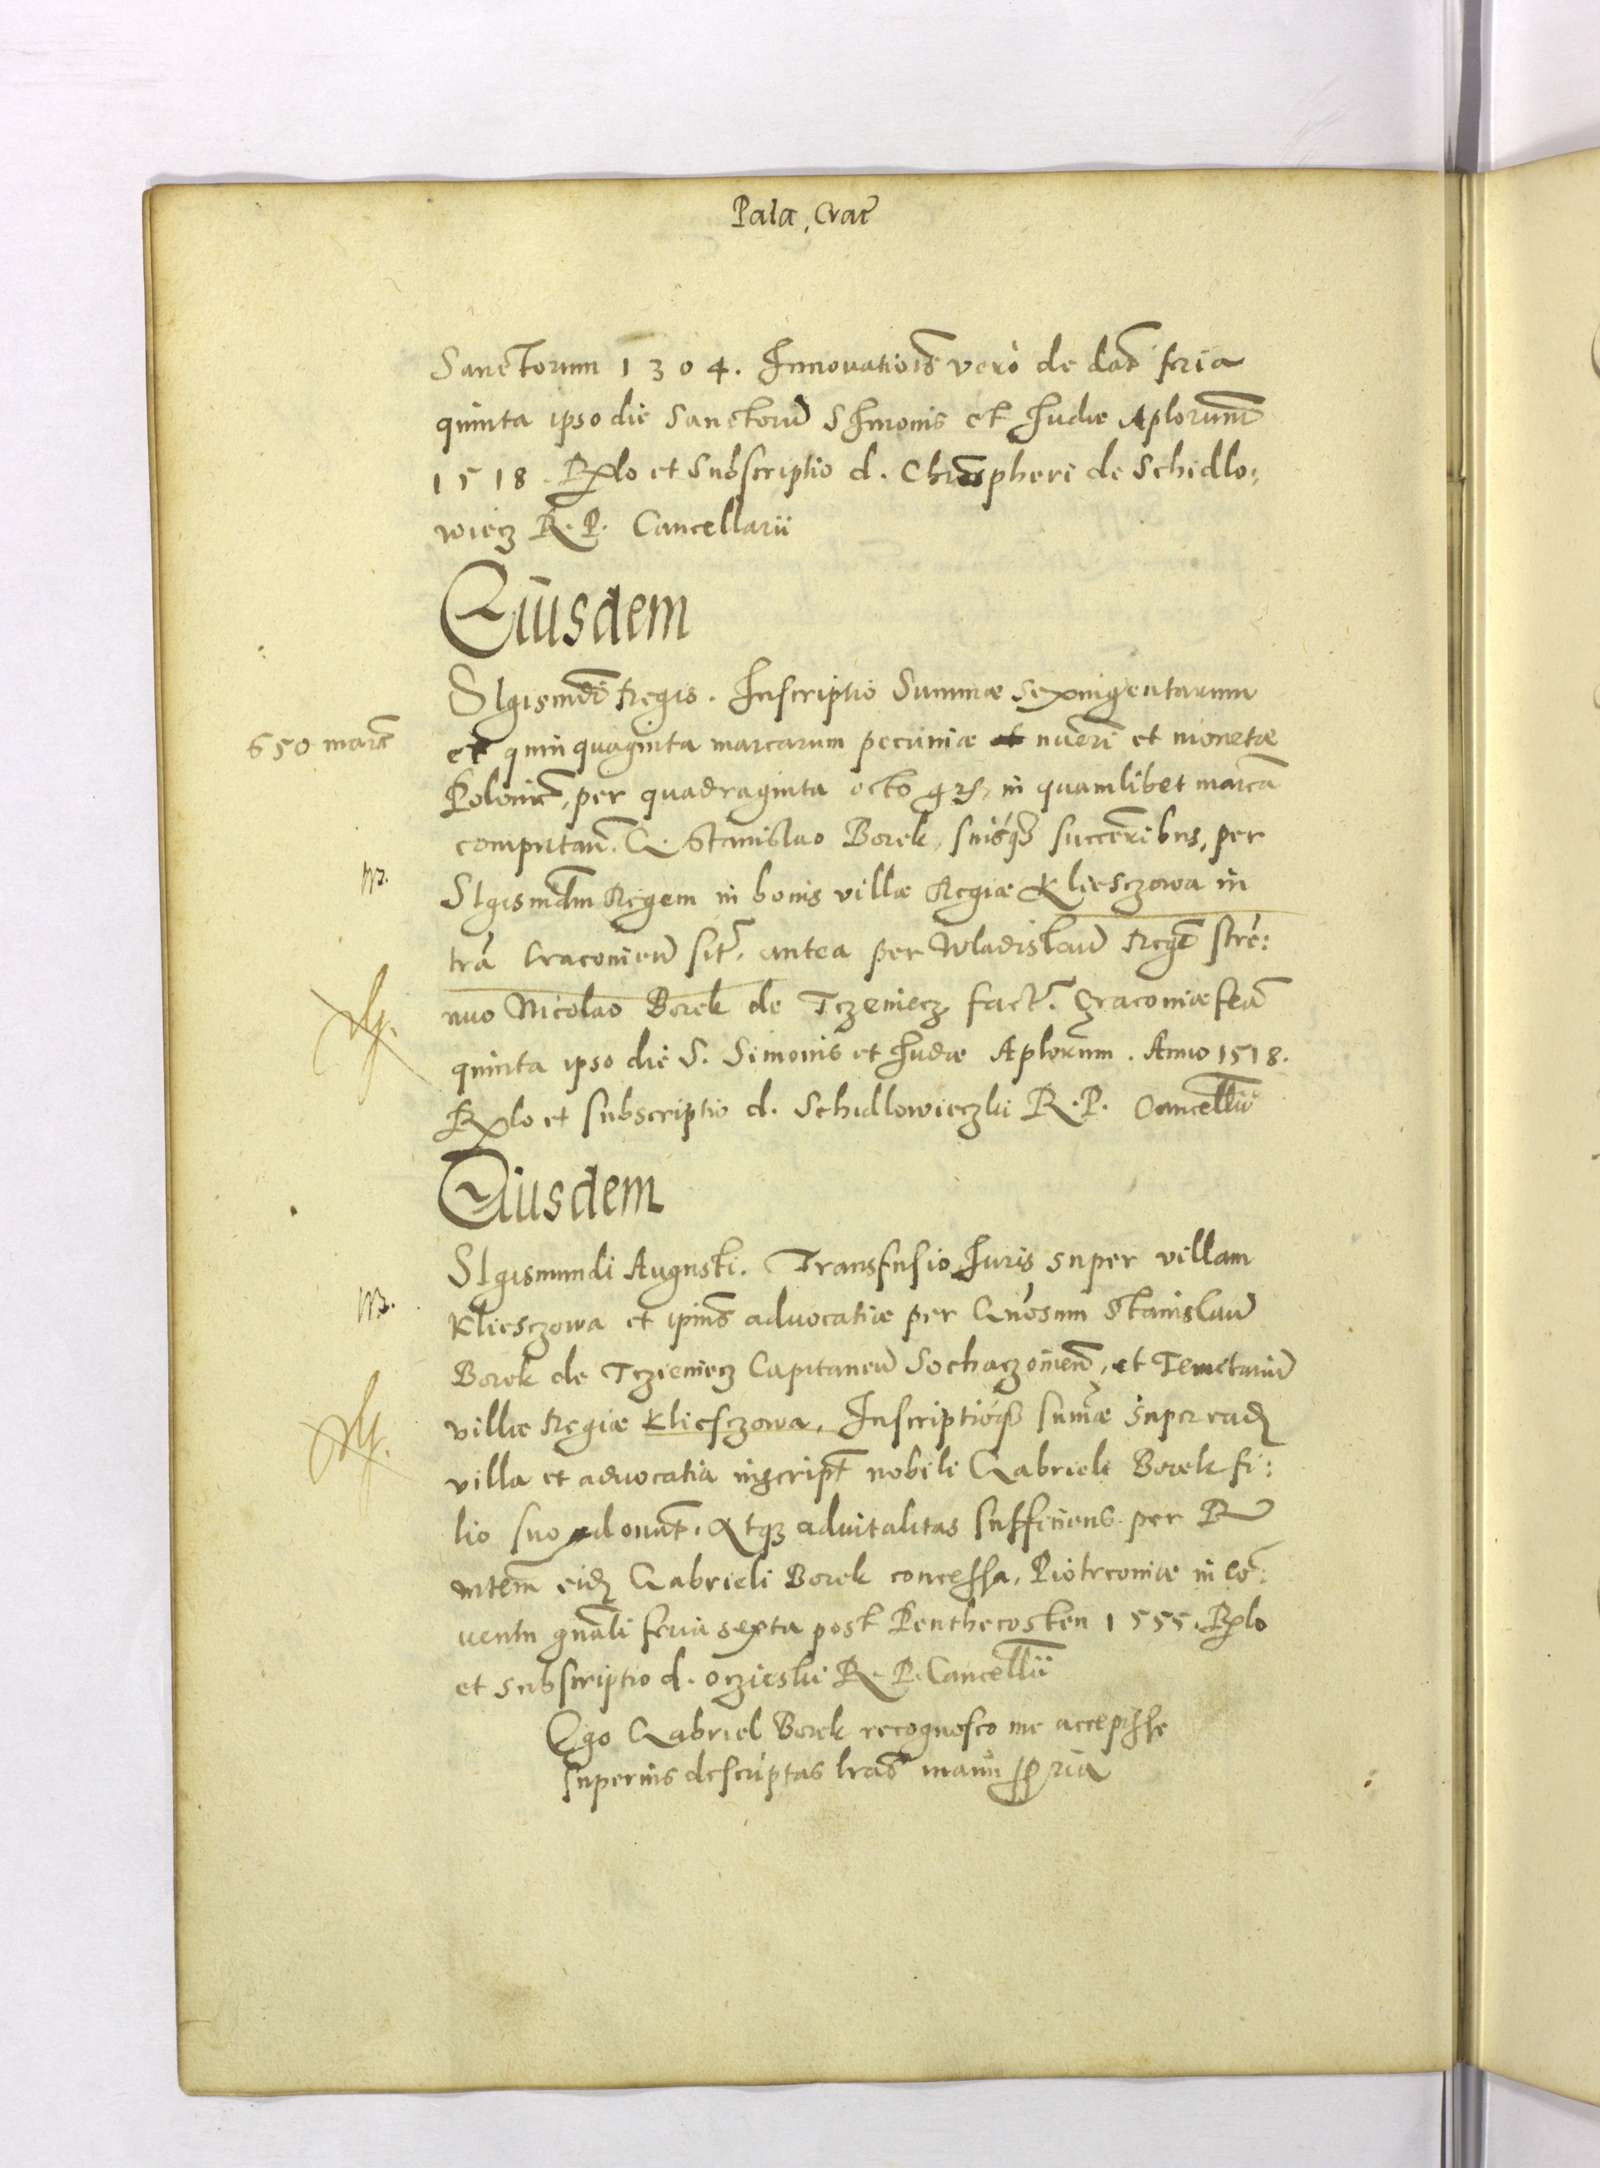 Pala. Crac̃
Sanctorum 1304. Innovatiõis verò de dat̃ feria
quinta ipso die Sanctorũ SImonis et Judæ Aplorum̃
1518. Rxlo et Subscriptio d. Chrisphori de Schidlo:
wiecz R. P. Cancellarii
Eiusdem
SIgismdĩ Regis. Inscriptio Summæ Sexingentarum
650 marc̃
et quinquaginta marcarum pecuniæ nuerĩ et monetæ
Polonic̃, per quadraginta octo grs, in quamlibet marcã
computañ. G. Stanislao Borek, suisq3 succerĩbus, per
m.
SIgismdm̃ Regem in bonis villæ Regiæ Klieszowa in
trá Cracovieñ sit̃. antea per Wladislaũ Regẽ stre:
nuo Nicolao Borek de Tczeniecz fact̃. Cracoviæ feã
quinta ipso die S. Simonis et Judæ Aplorum. Anno 1518.
Rxlo et subscriptio d. Schidlowieczki R. P. Cancellii
Eiusdem
SIgismundi Augusti. Transfusio Juris super villam
m.
Klieszowa et ipiuš advocatiæ per Gñosum Stanislaũ
Borek de Tczieniecz Capitaneũ Sochaczovieñ, et Tenutariũ
villæ Regiæ Kliesczowa, Inscriptiõisq3 sum̃æ super ead
villa et advocatia inscript̃ nobili Gabrieli Borek fi:
lio suo donat̃. Atq3 advitalitas sufficiens per R
mtem̃ eid Gabrieli Borek concessa, Piotrcoviæ in cõ:
ventu gnãli feria sexta post Penthecosten 1555. Rxlo
et subscriptio d. oczieski R. P. Cancellii
Ego Gabriel Borek recognosco me accepisse
superius descriptas lras̃ manu ppria